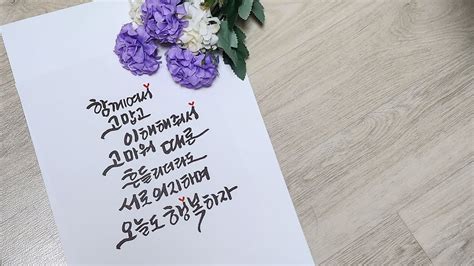 함께여서
고맙고
이해해줘서
고마워 때론
흔들리더라도
서로 의지하며
오늘도 행복하자